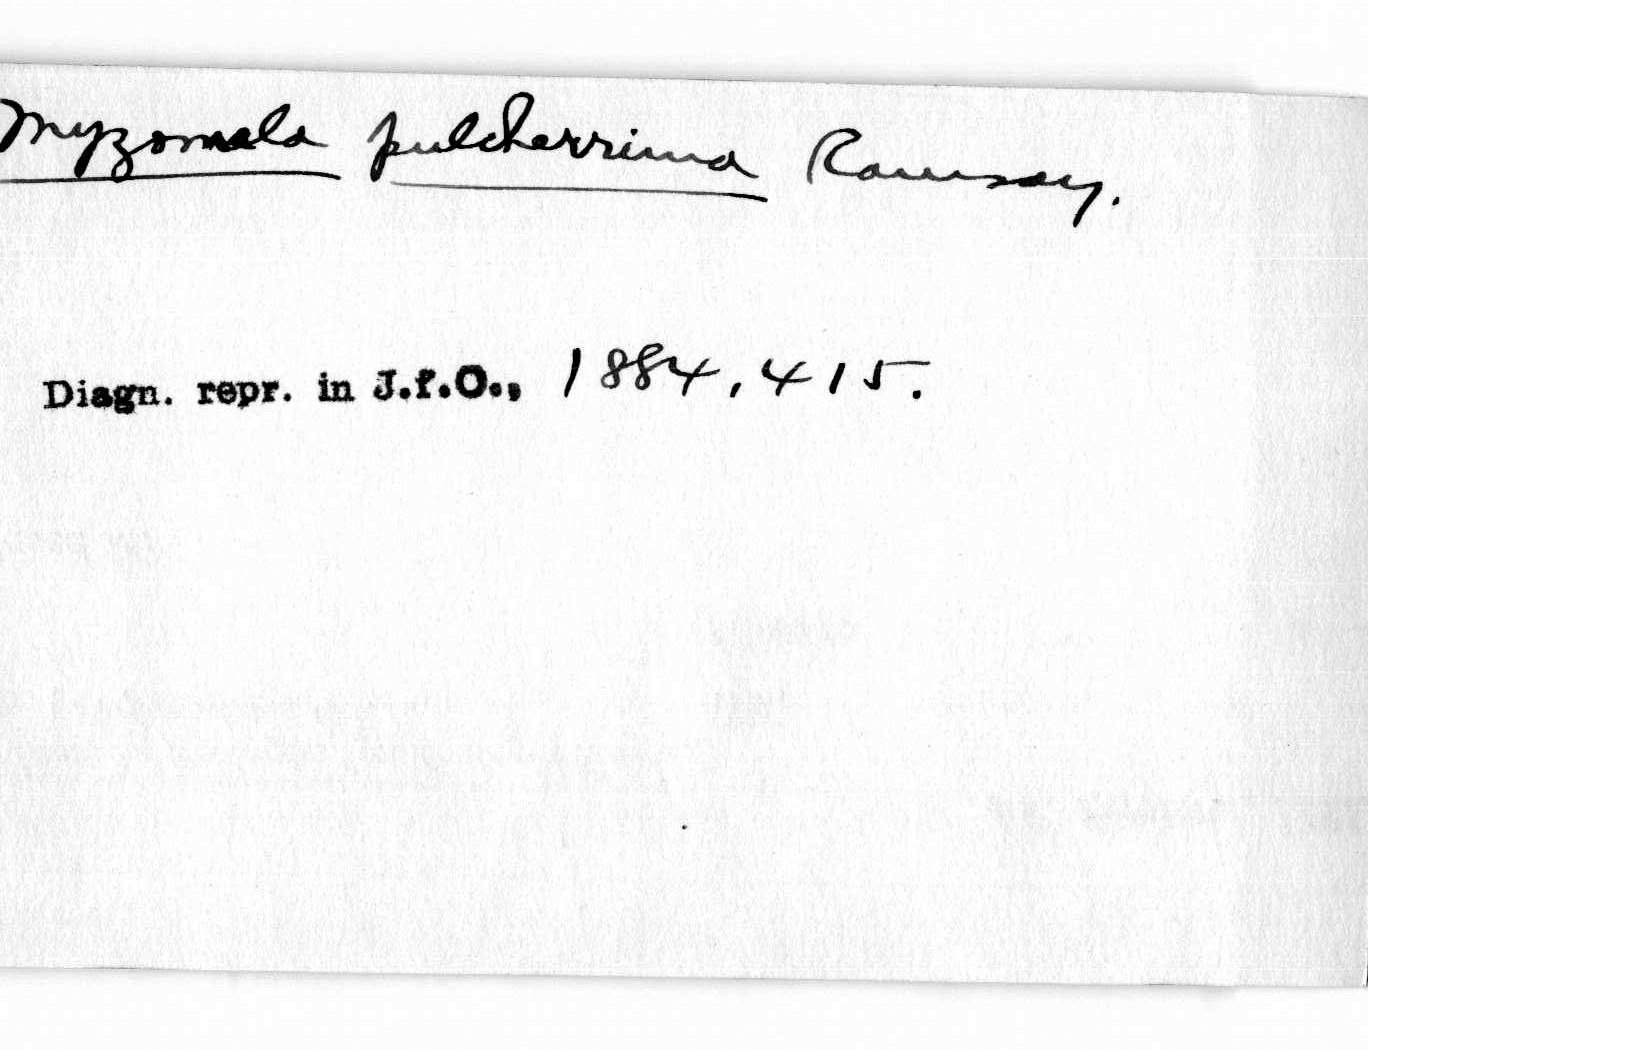 Myzomela pulcherrima Ramsay.
Diagn. repr. in J.f.O., 1884, 415.